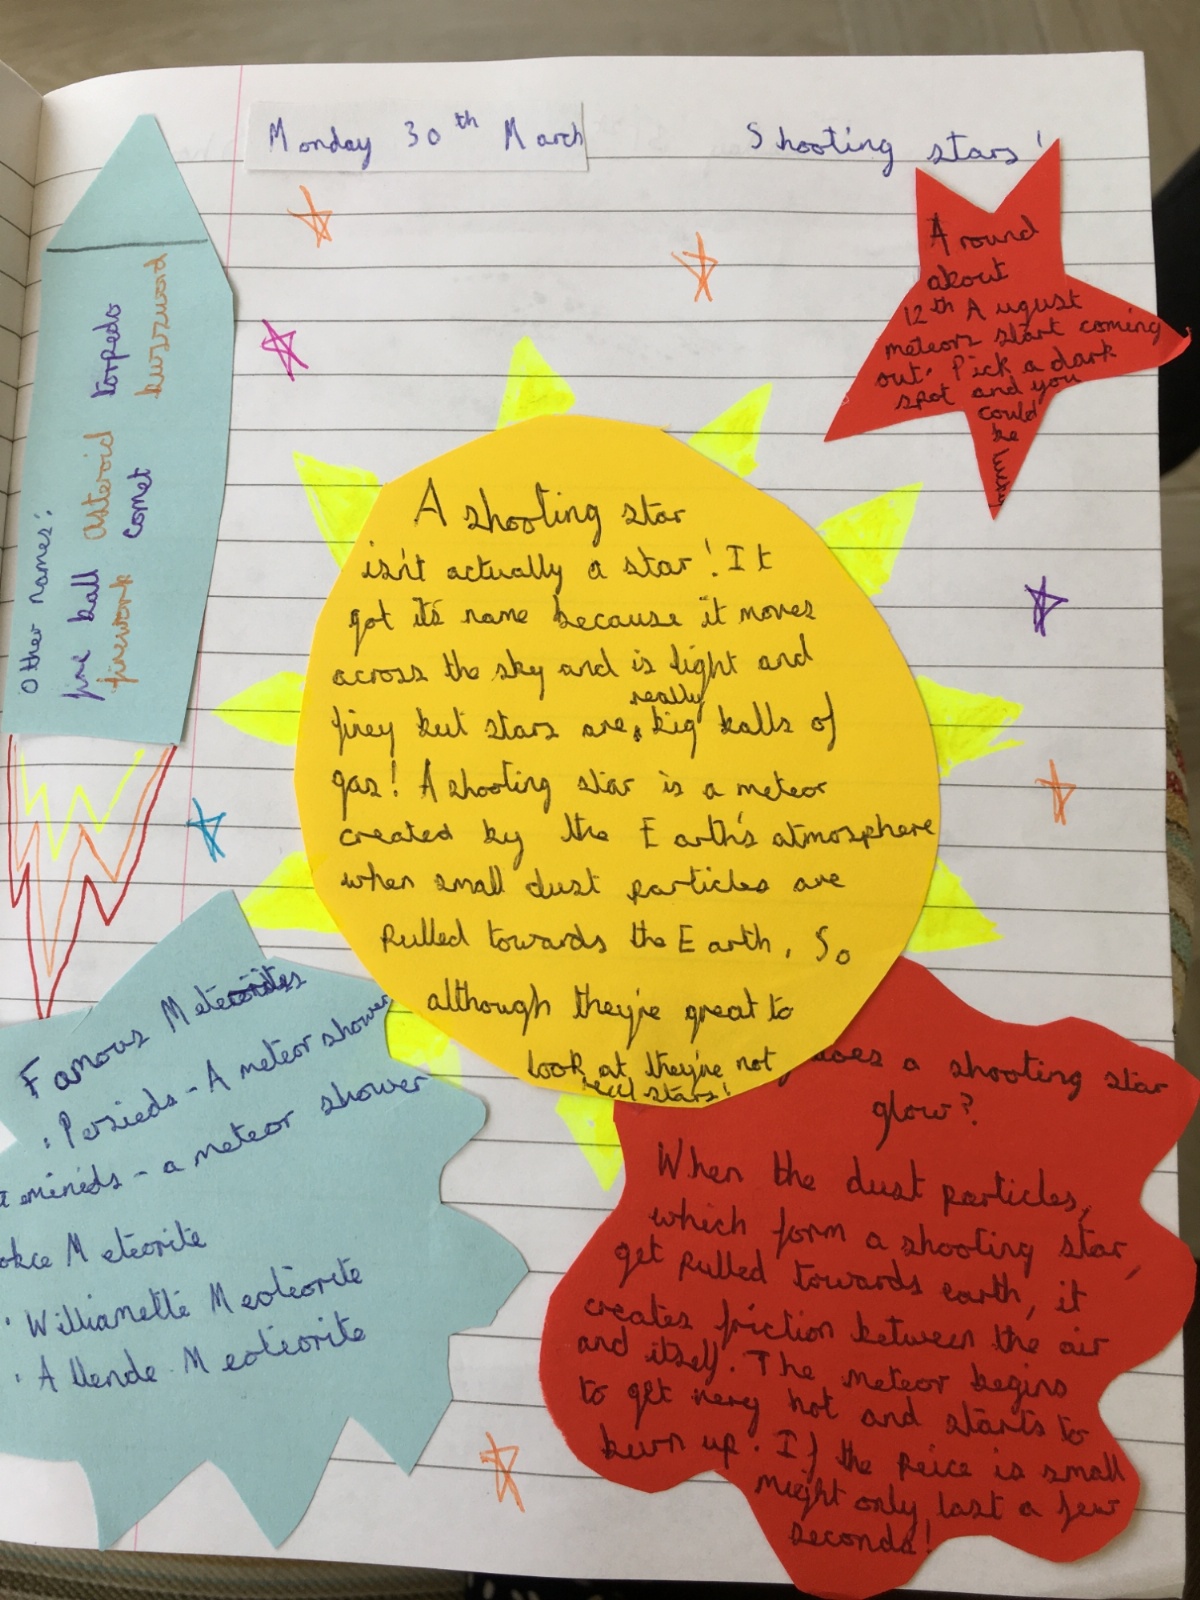 Monday 30th March
Shooting stars!
Around
about
12th August
meteors start coming
out. Pick a dark
spot and you
could
be
lucky
Other names:
fire ball asteroid torpedo
firework comet buzzword
A shooting star
isn't actually a star! It
got it's name because it moves
across the sky and is light and
really
firey but stars are big balls of
gas! A shooting star is a meteor
created by the Earth's atmosphere
when small dust particles are
Pulled towards the Earth. So
although they're great to
look at, they're not
real stars!
Famous Meteorites
Persieds - A meteor shower
eminids - a meteor shower
Meteorite
Willianette Meoteorite
Allende Meoteorite
does a shooting star
glow?
When the dust particles,
which form a shooting star,
get Pulled towards earth, it
creates friction between the air
and itself. The meteor begins
to get very hot and starts to
burn up. If the Peice is small
might only last a few
seconds!